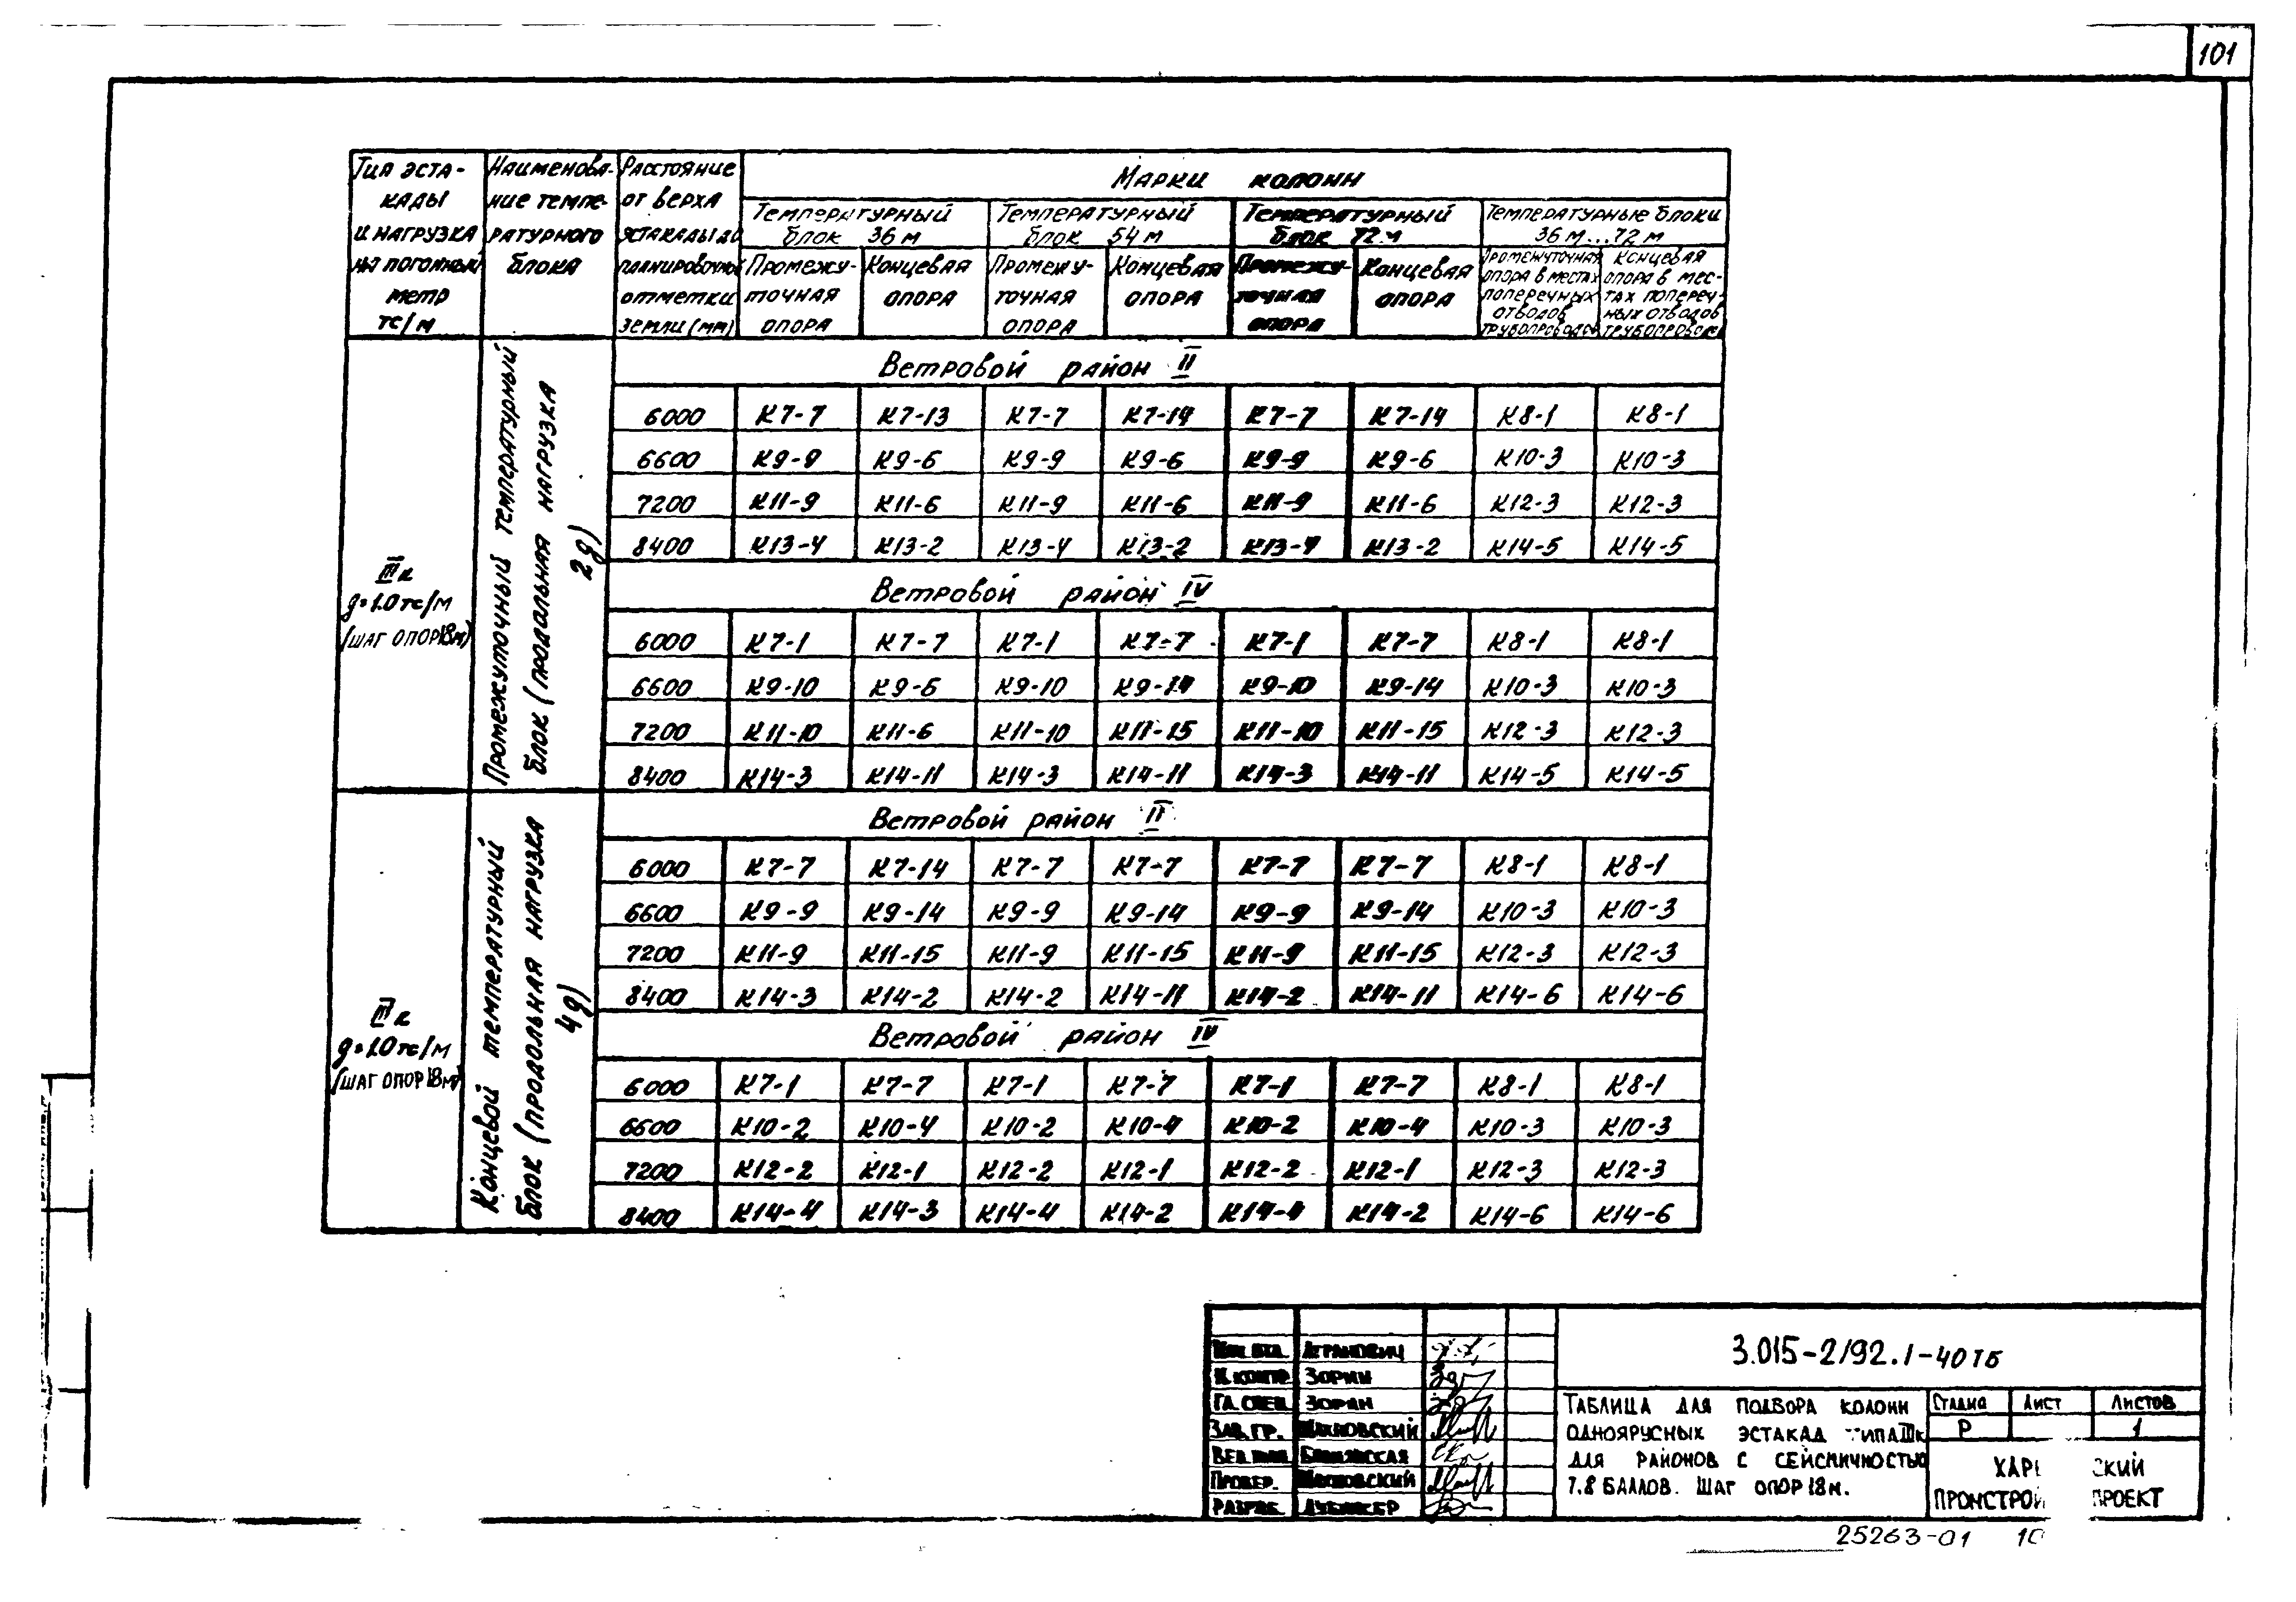 101
Тип эста-
кады
и нагрузка
на погонный
метр
тс/м
Наименова-
ние темпе-
ратурного
блока
Расстояние
от верха
эстакады до
планировочной
отметки
земли (мм)
Марки колонн
Температурный
блок 36 м
Температурный
блок 54 м
Температурный
блок 72 м
Температурные блоки
36 м...72 м
Промежу-
точная
опора
Концевая
опора
Промежу-
точная
опора
Концевая
опора
Промежу-
точная
опора
Концевая
опора
Промежуточная
опора в местах
поперечных
отводов
трубопроводов
Концевая
опора в мес-
тах попереч-
ных отводов
трубопроводов
IIIк
g=1.0 тс/м
(шаг опор 18м)
Промежуточный температурный
блок (продольная нагрузка
2g)
Ветровой район II
6000 К7-7 К7-13 К7-7 К7-14 К7-7 К7-14 К8-1 К8-1
6600 К9-9 К9-6 К9-9 К9-6 К9-9 К9-6 К10-3 К10-3
7200 К11-9 К11-6 К11-9 К11-6 К11-9 К11-6 К12-3 К12-3
8400 К13-4 К13-2 К13-4 К13-2 К13-4 К13-2 К14-5 К14-5
Ветровой район IV
6000 К7-1 К7-7 К7-1 К7-7 К7-1 К7-7 К8-1 К8-1
6600 К9-10 К9-6 К9-10 К9-14 К9-10 К9-14 К10-3 К10-3
7200 К11-10 К11-6 К11-10 К11-15 К11-10 К11-15 К12-3 К12-3
8400 К14-3 К14-11 К14-3 К14-11 К14-3 К14-11 К14-5 К14-5
IIIк
g=1.0 тс/м
(шаг опор 18м)
Концевой температурный
блок (продольная нагрузка
4g)
Ветровой район II
6000 К7-7 К7-14 К7-7 К7-7 К7-7 К7-7 К8-1 К8-1
6600 К9-9 К9-14 К9-9 К9-14 К9-9 К9-14 К10-3 К10-3
7200 К11-9 К11-15 К11-9 К11-15 К11-9 К11-15 К12-3 К12-3
8400 К14-3 К14-2 К14-2 К14-11 К14-2 К14-11 К14-6 К14-6
Ветровой район IV
6000 К7-1 К7-7 К7-1 К7-7 К7-1 К7-7 К8-1 К8-1
6600 К10-2 К10-4 К10-2 К10-4 К10-2 К10-4 К10-3 К10-3
7200 К12-2 К12-1 К12-2 К12-1 К12-2 К12-1 К12-3 К12-3
8400 К14-4 К14-3 К14-4 К14-2 К14-4 К14-2 К14-6 К14-6
Агранович
Н.контр Зорин
Гл. спец. Зорин
Зав. гр. Шахновский
Провер. Шахновский
Разраб.
3.015-2/92.1-40ТБ
Таблица для подбора колонн
одноярусных эстакад типа IIIк
для районов с сейсмичностью
7.8 баллов. Шаг опор 18м.
Стадия Лист Листов
Р 1
25263-01